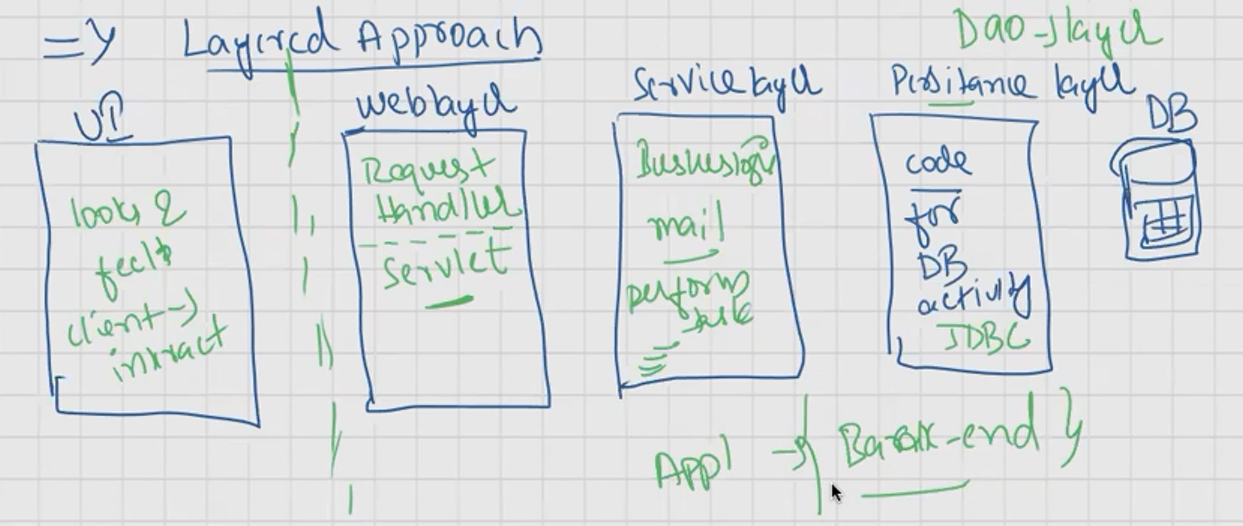 => Layered Approach
Dao-layer
UI
looks &
feels
client ->
intract
Weblayer
Request
Handler
Servlet
Service layer
Busineslogic
mail
perform
task
Persitance layer
code
for
DB
activity
JDBC
DB
Appl -> Back-end }